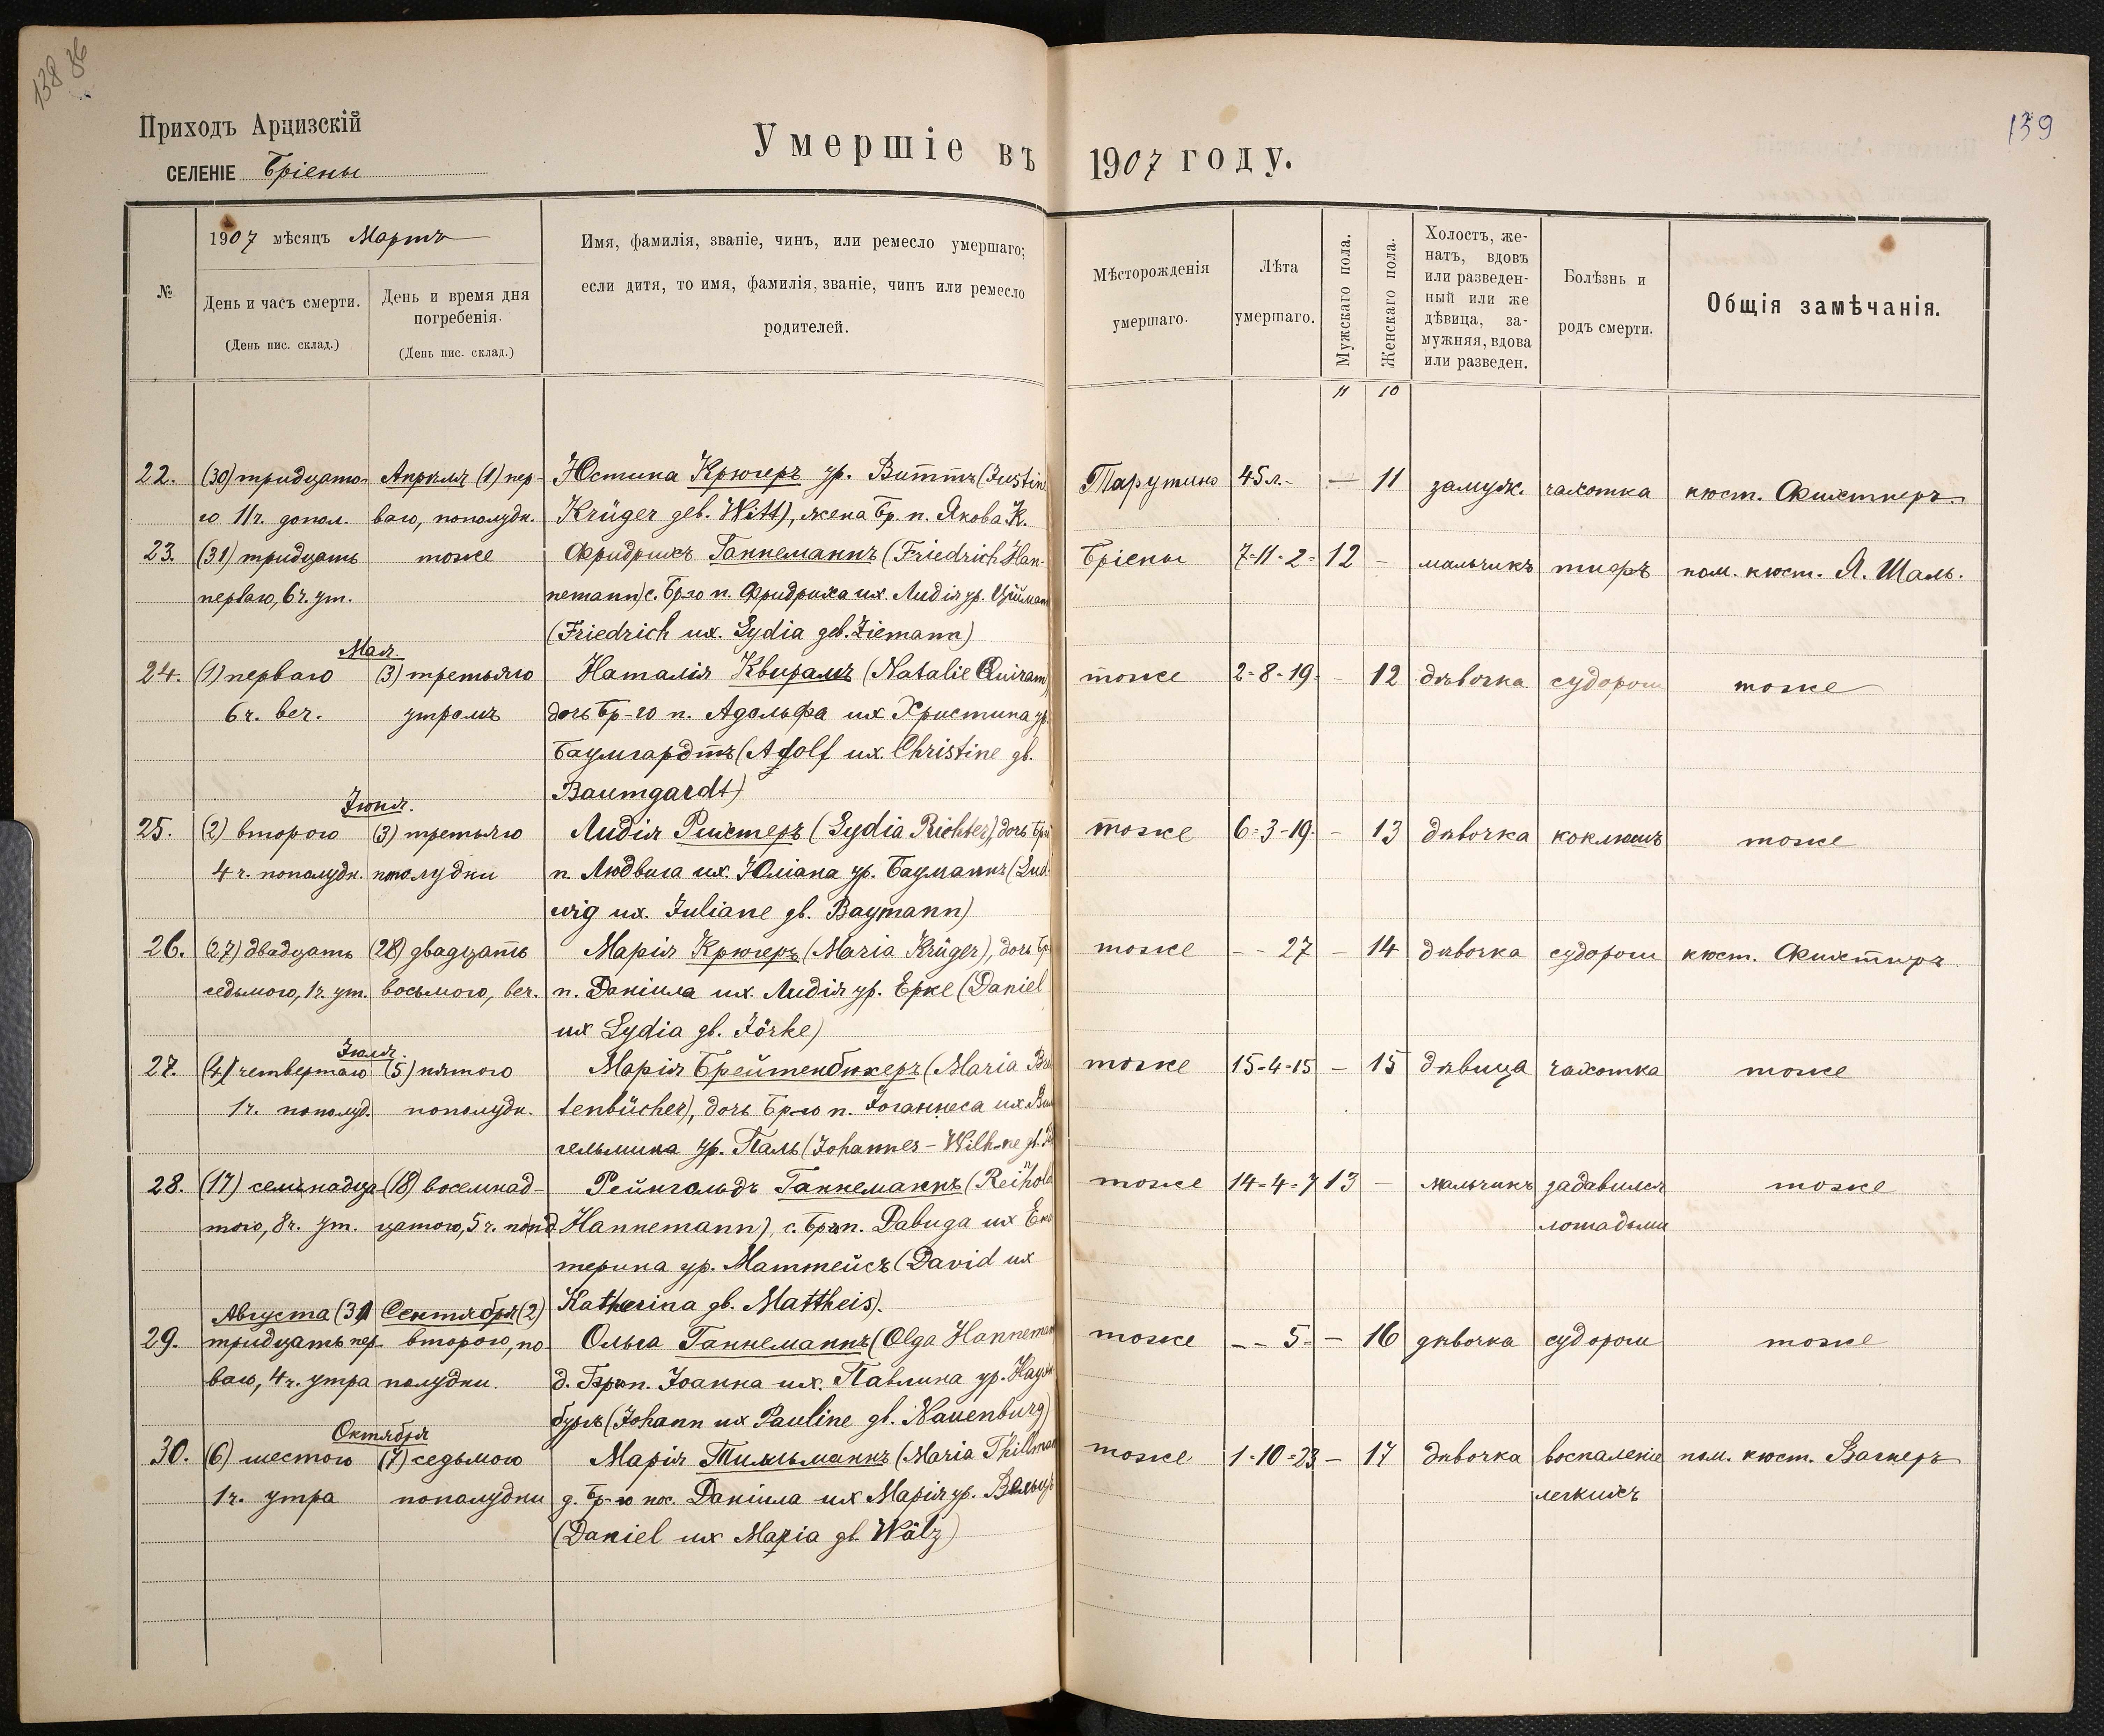 138 86
139
Приходъ Арцизскій
СЕЛЕНІЕ Бріены
Умершіе въ 1907 году.
№
1907 мѣсяцъ Мартъ
День и часъ смерти.
(День пис. склад.)
День и время дня
погребенія.
(День пис. склад.)
Имя, фамилія, званіе, чинъ, или ремесло умершаго;
если дитя, то имя, фамилія, званіе, чинъ или ремесло
родителей.
Мѣсторожденія
умершаго.
Лѣта
умершаго.
Мужскаго пола.
Женскаго пола.
Холостъ, же-
натъ, вдовъ
или разведен-
ный или же
дѣвица, за-
мужняя, вдова
или разведен.
Болѣзнь и
родъ смерти.
Общія замѣчанія.
11 10
22. (30) тридцато- Апрѣля (1) пер- Юстина Крюгеръ ур. Виттъ (Justine Тарутино 45 л. — 11 замуж. чахотка кюст. Фихтнеръ
го 11 ч. допол. ваго, пополудн. Krüger geb. Witt), жена Бр. п. Якова К.
23. (31) тридцать тоже Фридрихъ Ганнеманнъ (Friedrich Han- Бріены 7-11-2- 12 - мальчикъ тифъ пом. кюст. Я. Шаль.
перваго, 6 ч. ут. nemann) с. Бр-го п. Фридриха их. Лидія ур. Цииман
(Friedrich их. Lydia geb. Ziemann)
Мая.
24. (1) перваго (3) третьяго Наталія Квирамъ (Natalie Quiram) тоже 2-8-19. - 12 дѣвочка судороги тоже
6 ч. веч. утромъ дочь Бр-го п. Адольфа их Христина ур.
Баумгардтъ (Adolf их. Christine gb.
Baumgardt)
Іюня.
25. (2) второго (3) третьяго Лидія Рихтеръ (Lydia Richter), дочь Бр тоже 6-3-19. - 13 дѣвочка коклюшъ тоже
4 ч. пополудн. пополудни п. Людвига их. Юліана ур. Бауманнъ (Lud-
wig их. Juliane gb. Baumann)
26. (27) двадцать (28) двадцать Марія Крюгеръ (Maria Krüger), дочь Бр тоже - - 27 - 14 дѣвочка судороги кюст. Фихтнеръ
седьмого, 1 ч. ут. восьмого, веч. п. Даніила их Лидія ур. Ерке (Daniel
их Lydia gb. Jörke)
Іюля.
27. (4) четвертаго (5) пятого Марія Брейтенбихеръ (Maria Brei тоже 15-4-15 - 15 дѣвица чахотка тоже
1 ч. пополуд. пополудн. tenbücher), дочь Бр-го п. Іоганнеса их Вил
гельмина ур. Паль (Johannes - Wilh-ne gb.
28. (17) семнадца- (18) восемнад- Рейнгольдъ Ганнеманнъ (Reinhold тоже 14-4-7 13 - мальчикъ задавился тоже
того, 8 ч. ут. цатого, 5 ч. попд. Hannemann), с. Бр. п. Давида их Ека лошадьми
терина ур. Маттейсъ (David их
Katherina gb. Mattheis).
Августа (31 Сентября (2)
29. тридцать пер- второго, по- Ольга Ганнеманнъ (Olga Hanneman тоже - - 5 - - 16 дѣвочка судороги тоже
ваго, 4 ч. утра полудни. д. Бр. п. Іоанна их. Павлина ур. Науен
бургъ (Johann их Pauline gb. Nauenburg)
Октября
30. (6) шестого (7) седьмого Марія Тилльманнъ (Maria Thillman тоже 1-10-23 - 17 дѣвочка воспаленіе пом. кюст. Вагнеръ
1 ч. утра пополудни д. Бр-го пос. Даніила их Марія ур. Вельцъ легкихъ
(Daniel их Maria gb Wälz)